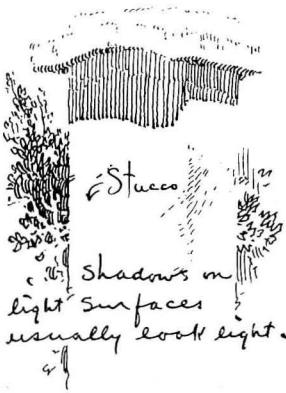 Stucco
Shadows on
light surfaces
usually look light.